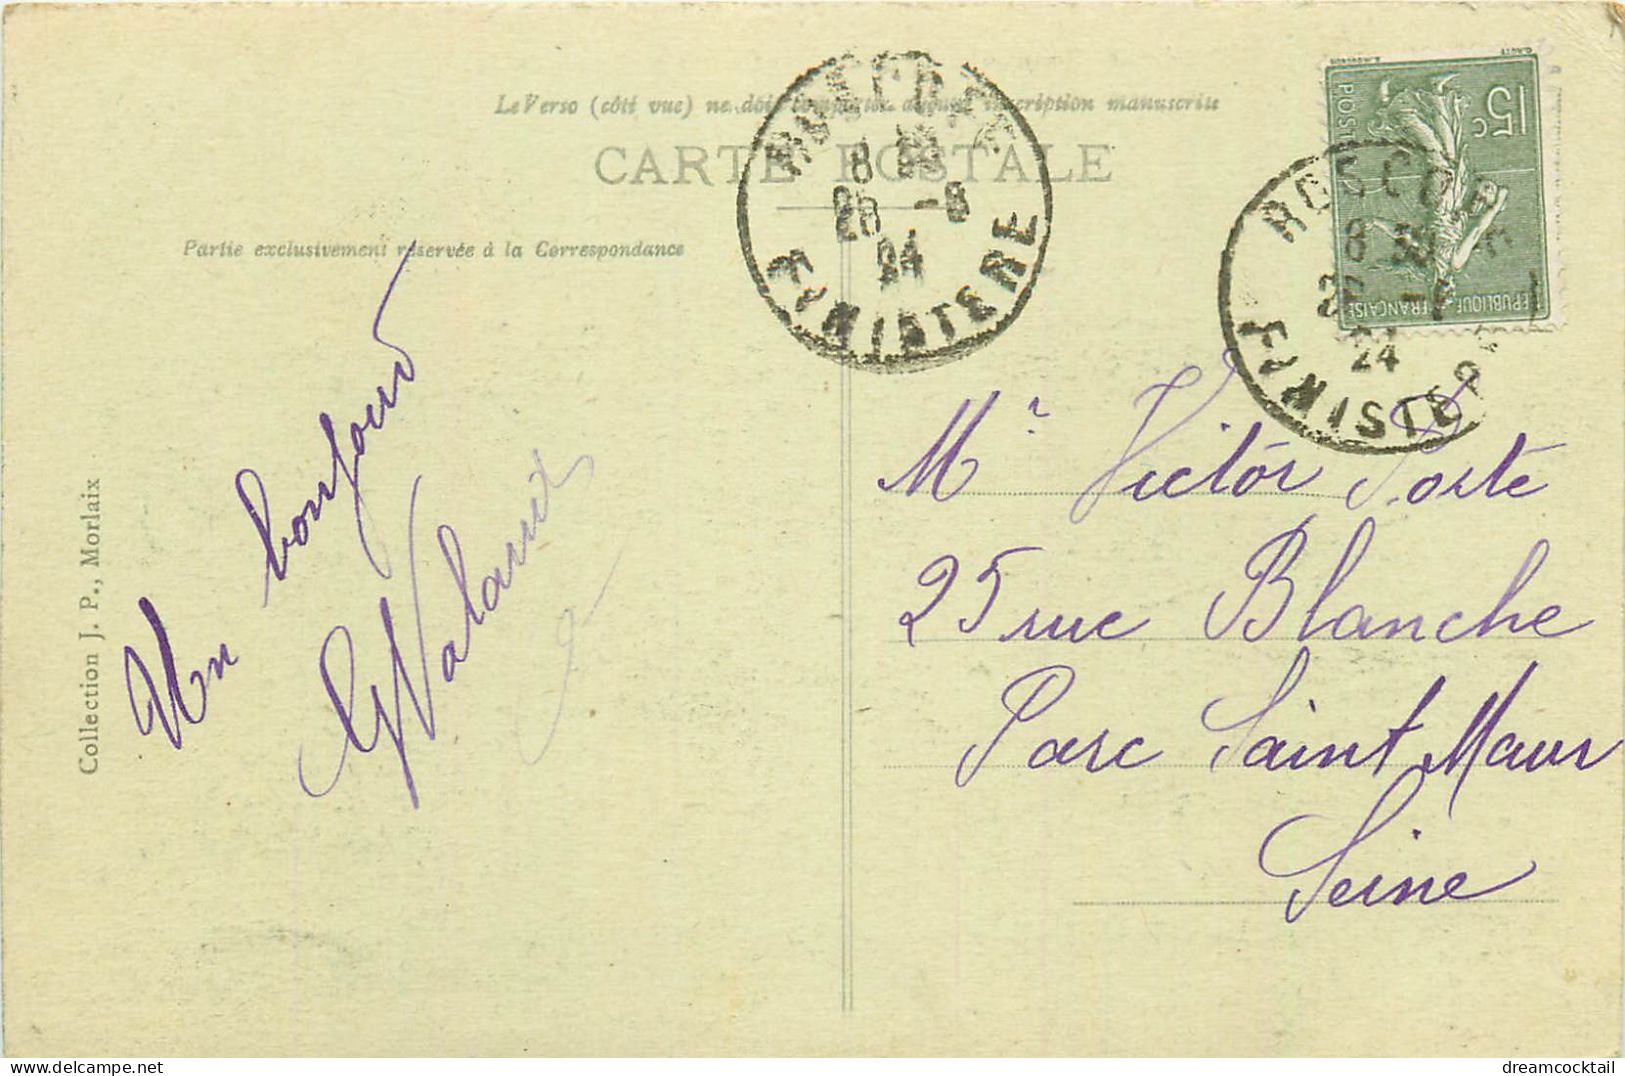 Le Verso (côté vue) ne doit comporter aucune inscription manuscrite
CARTE POSTALE
Partie exclusivement réservée à la Correspondance
ROSCOFF
8 30
26 -8
24
FINISTERE
15c
POSTES
REPUBLIQUE FRANÇAISE
ROSCOFF
8 30
24
FINISTERE
Un bonjour
Mr Victor Porte
25 rue Blanche
Parc Saint Maur
Seine
Collection J. P., Morlaix
dreamcocktail